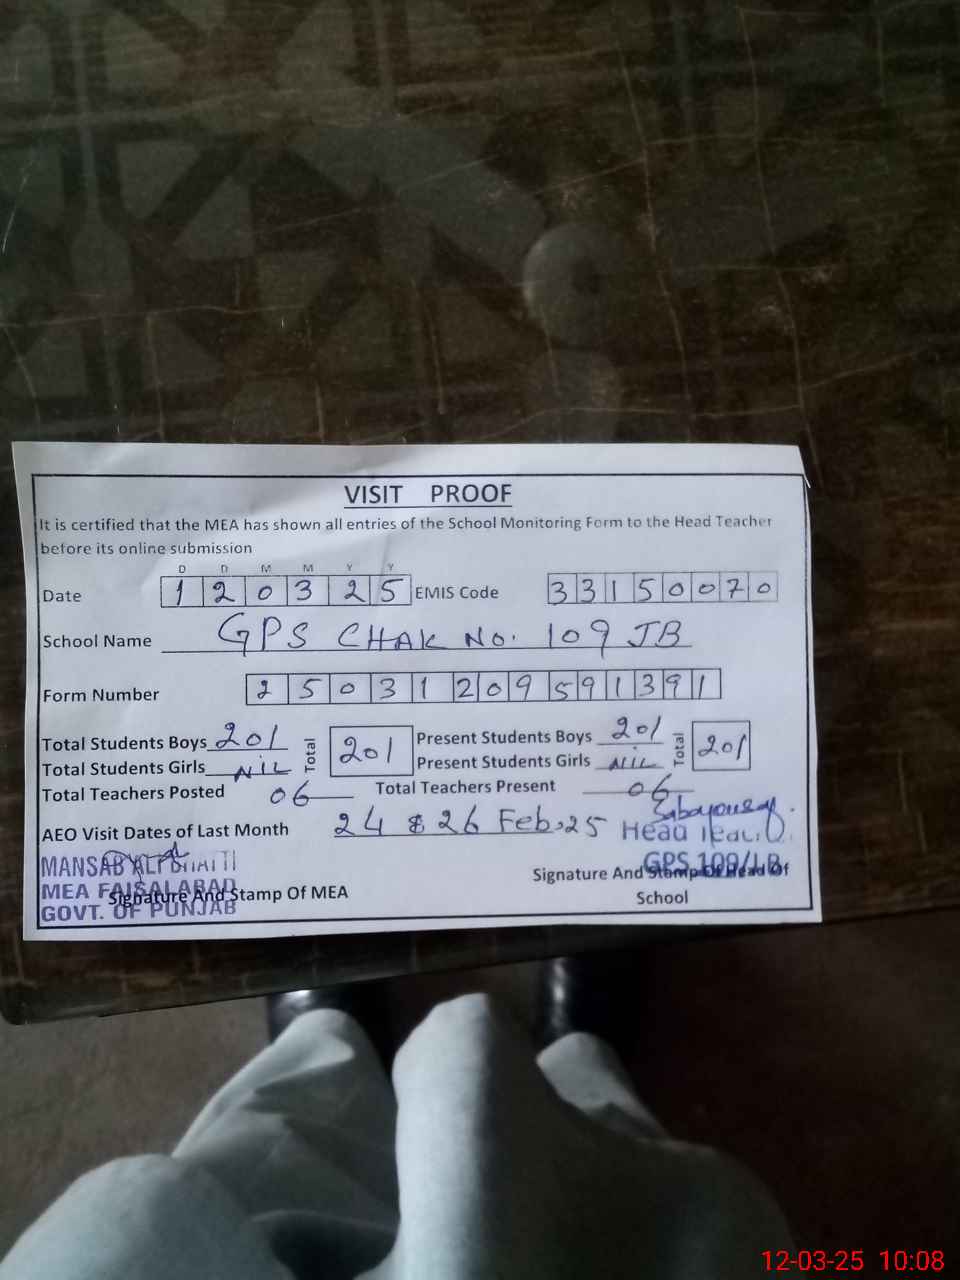 VISIT PROOF
It is certified that the MEA has shown all entries of the School Monitoring Form to the Head Teacher
before its online submission
D D M M Y Y
Date 1 2 0 3 2 5 EMIS Code 3 3 1 5 0 0 7 0
School Name GPS CHAK NO. 109 JB
Form Number 2 5 0 3 1 2 0 9 5 9 1 3 9 1
Total Students Boys 201 Total 201 Present Students Boys 201 Total 201
Total Students Girls NIL Present Students Girls NIL
Total Teachers Posted 06 Total Teachers Present 06
AEO Visit Dates of Last Month 24 & 26 Feb, 25
Head
MANSAB ALI BHATTI GPS 109/J.B
MEA FAISALABAD Signature And Stamp Of Head Of
Signature And Stamp Of MEA School
GOVT. OF PUNJAB
12-03-25 10:08